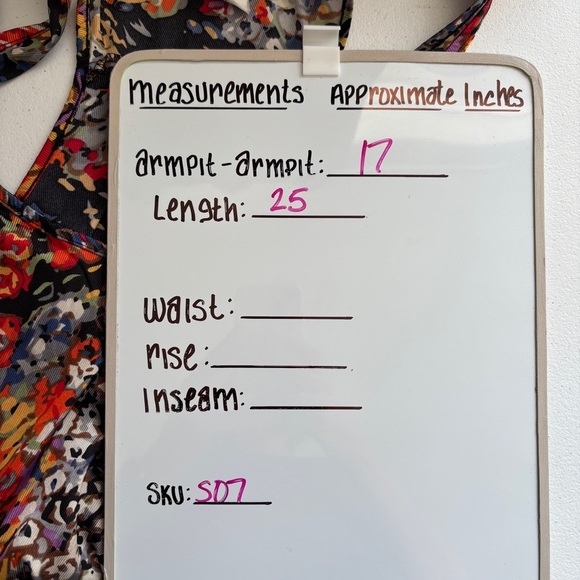 measurements Approximate Inches
armpit-armpit: 17
Length: 25
waist:
rise:
Inseam:
SKU: S07